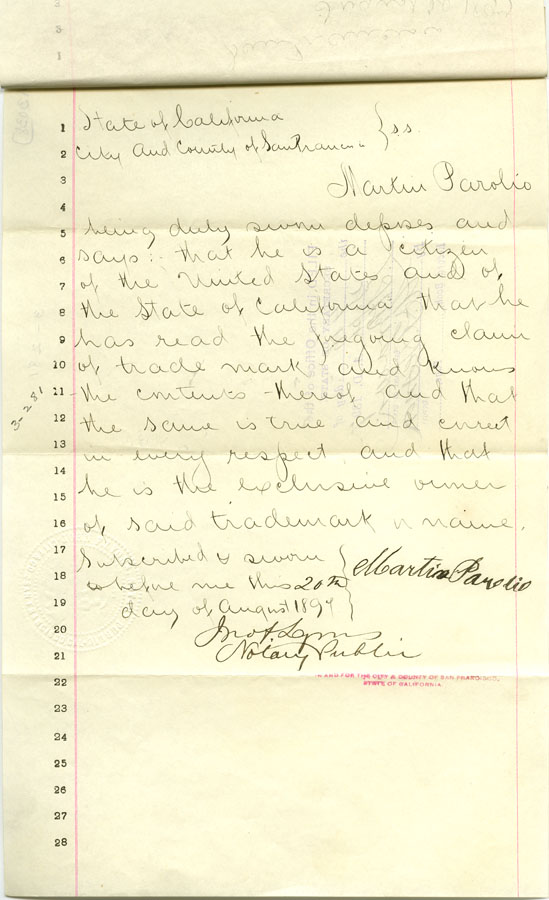 State of California
City And County of San Francisco } ss.
Martin Parolio
being duly sworn deposes and
says: that he is a citizen
of the United States and of
the State of California that he
has read the foregoing claim
of trade mark and knows
the contents thereof and that
the same is true and correct
in every respect and that
he is the exclusive owner
of said trademark or name.
Subscribed & sworn
to before me this 20th
day of August 1897
Martin Parolio
Notary Public
IN AND FOR THE CITY & COUNTY OF SAN FRANCISCO,
STATE OF CALIFORNIA
3-231
1
2
3
4
5
6
7
8
9
10
11
12
13
14
15
16
17
18
19
20
21
22
23
24
25
26
27
28